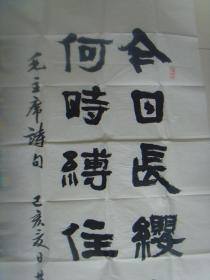 今日長纓
何時縛住
毛主席詩句
己亥夏日